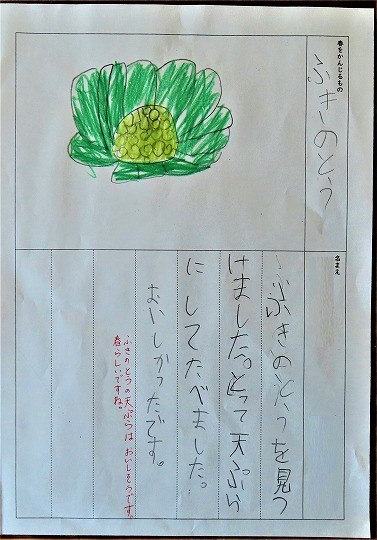 春をかんじるもの
ふきのとう
名まえ
ふきのとうを見つ
けました。とって天ぷら
にしてたべました。
おいしかったです。
ふきのとうの天ぷらはおいしそうです。
春らしいですね。